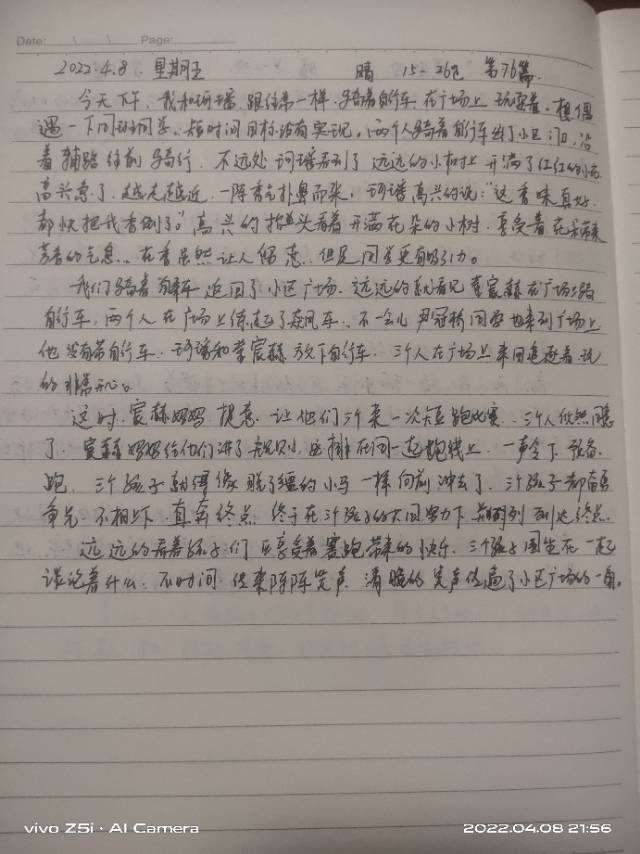 Date: Page:
2022.4.8. 星期五 晴 15-26℃ 第76篇.
今天下午, 我和珂瑶 跟往常一样. 骑着自行车 在广场上 玩耍着. 想偶
遇一下同班同学、短时间目标没有实现, 两个人骑着自行车出了小区门口, 沿
着辅路往前骑行. 不远处 珂瑶看到了 远远的小树上 开满了红红的小花
高兴急了. 越走越近. 一阵香气扑鼻而来, 珂瑶高兴的说:“这香味真好.
都快把我香倒了。”高兴的抬头看着开满花朵的小树. 享受着花朵带来
芳香的气息、花香虽然让人留恋. 但是同学更有吸引力。
我们骑着自行车 返回了小区广场. 远远的就看见 李宸赫在广场上骑
自行车, 两个人在广场上像起了疯车、不一会儿 尹冠桥同学也来到广场上
他没有带自行车. 珂瑶和李宸赫 放下自行车. 三个人在广场上来回追逐着 玩
的非常开心。
这时. 宸赫妈妈 提意. 让他们三个来一次短跑比赛、三个人欣然同意
了. 宸赫妈妈给他们讲了规则, 并排在同一起跑线上. 一声令下 预备
跑, 三个孩子就像 脱了缰的小马一样向前冲去了. 三个孩子都奋勇
争先 不相上下. 直奔终点. 终于在三个孩子的共同努力下 并列到达终点.
远远的看着孩子们 在享受着 赛跑带来的快乐. 三个孩子围坐在一起
谈论着什么. 不时间 传来阵阵笑声. 清脆的笑声传遍了小区广场的一角。
vivo Z5i · AI Camera
2022.04.08 21:56